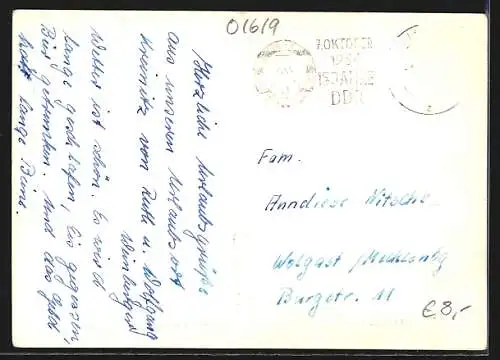 01619
7. OKTOBER
1964
15 JAHRE
DDR
Herzliche Urlaubsgrüße
aus unserem Urlaubsort
von Ruth u. Wolfgang
Wetter ist schön. Es wird
lange geschlafen, Eis gegessen,
Bier getrunken. Und das geht
halt lange Beine.
Fam.
Anndiese Nitsche
Wolgast/Mecklenbg
Burgstr. 11
€ 3,-